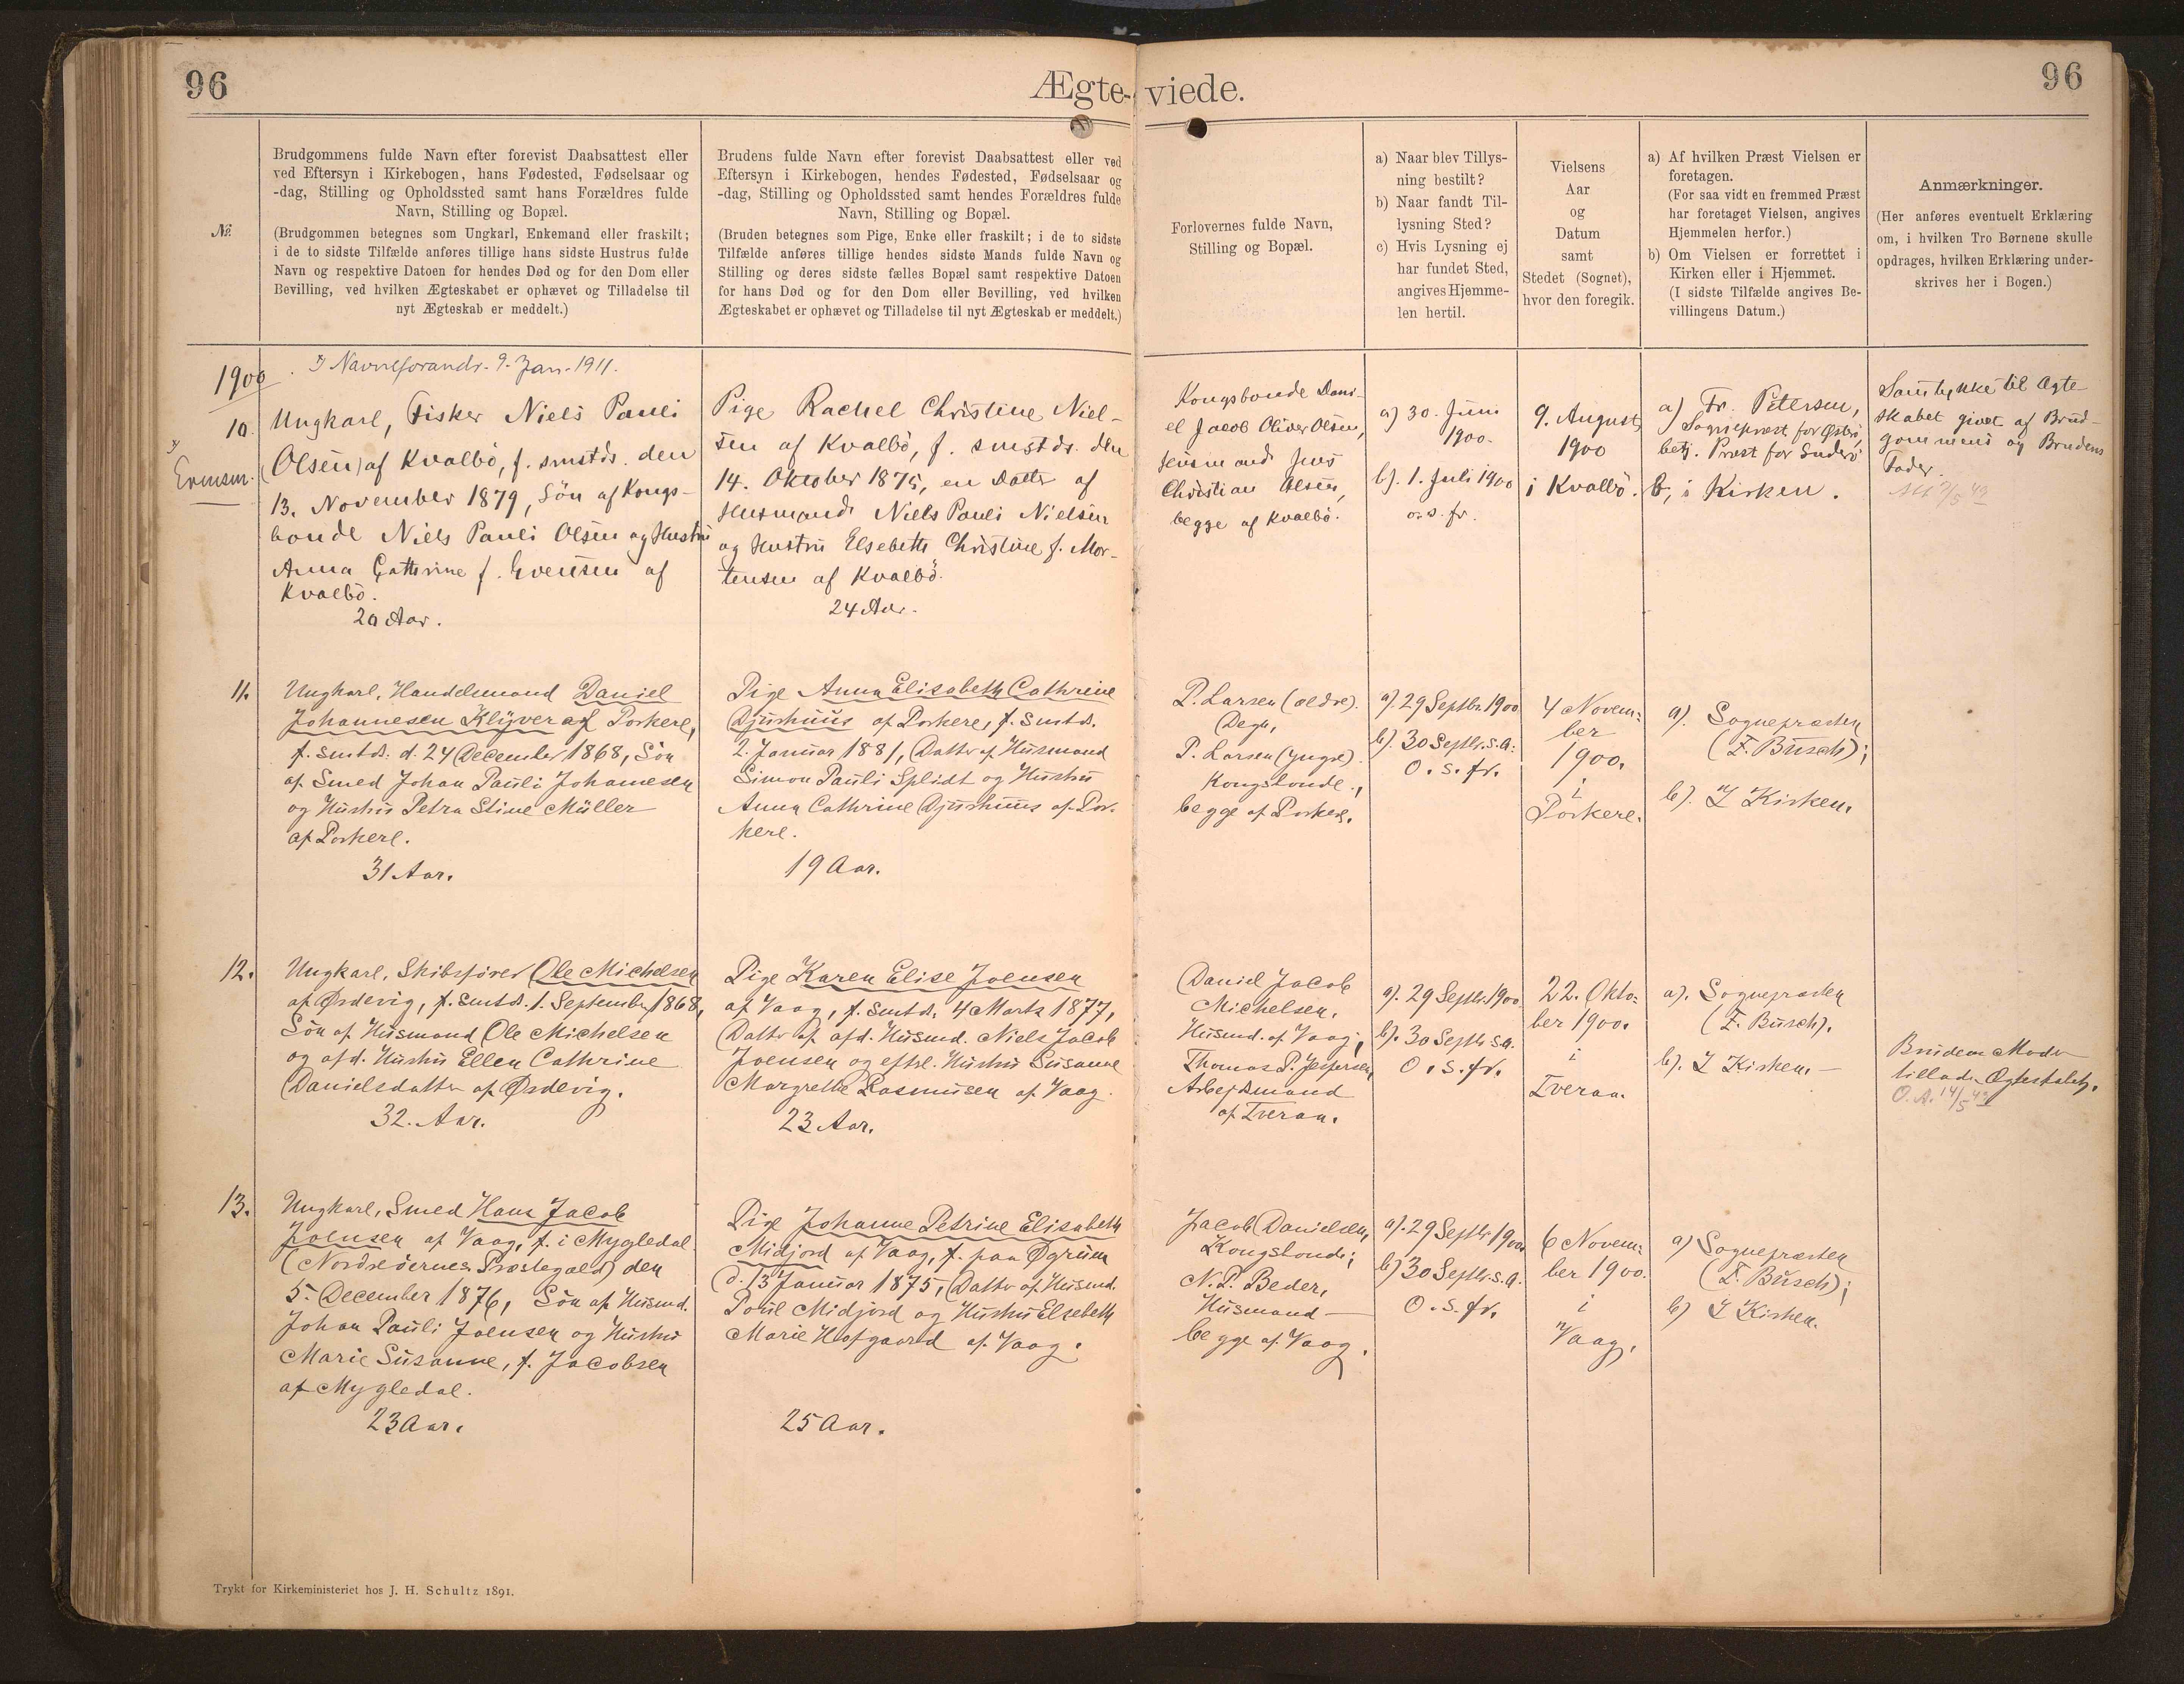 96
Ægte-viede.
96
No.
Brudgommens fulde Navn efter forevist Daabsattest eller
ved Eftersyn i Kirkebogen, hans Fødested, Fødselsaar og
-dag, Stilling og Opholdssted samt hans Forældres fulde
Navn, Stilling og Bopæl.
(Brudgommen betegnes som Ungkarl, Enkemand eller fraskilt;
i de to sidste Tilfælde anføres tillige hans sidste Hustrus fulde
Navn og respektive Datoen for hendes Død og for den Dom eller
Bevilling, ved hvilken Ægteskabet er ophævet og Tilladelse til
nyt Ægteskab er meddelt.)
Brudens fulde Navn efter forevist Daabsattest eller ved
Eftersyn i Kirkebogen, hendes Fødested, Fødselsaar og
-dag, Stilling og Opholdssted samt hendes Forældres fulde
Navn, Stilling og Bopæl.
(Bruden betegnes som Pige, Enke eller fraskilt; i de to sidste
Tilfælde anføres tillige hendes sidste Mands fulde Navn og
Stilling og deres sidste fælles Bopæl samt respektive Datoen
for hans Død og for den Dom eller Bevilling, ved hvilken
Ægteskabet er ophævet og Tilladelse til nyt Ægteskab er meddelt.)
Forlovernes fulde Navn,
Stilling og Bopæl.
a) Naar blev Tillys-
ning bestilt?
b) Naar fandt Til-
lysning Sted?
c) Hvis Lysning ej
har fundet Sted,
angives Hjemme-
len hertil.
Vielsens
Aar
og
Datum
samt
Stedet (Sognet),
hvor den foregik.
a) Af hvilken Præst Vielsen er
foretagen.
(For saa vidt en fremmed Præst
har foretaget Vielsen, angives
Hjemmelen herfor.)
b) Om Vielsen er forrettet i
Kirken eller i Hjemmet.
(I sidste Tilfælde angives Be-
villingens Datum.)
Anmærkninger.
(Her anføres eventuelt Erklæring
om, i hvilken Tro Børnene skulle
opdrages, hvilken Erklæring under-
skrives her i Bogen.)
1900
Navneforandr. 9. Jan. 1911.
10.
Evensen.
Ungkarl, Fisker Niels Pauli
(Olsen) af Kvalbö, f. smstds. den
13. November 1879, Sön af Kongs-
bonde Niels Pauli Olsen og Hustru
Anna Cathrine f. Evensen af
Kvalbö.
20 Aar.
Pige Rachel Christine Niel-
sen af Kvalbö, f. smstds. den
14. Oktober 1875, en Datter af
Husmand Niels Pauli Nielsen
og Hustru Elsebeth Christine f. Mor-
tensen af Kvalbö.
24 Aar.
Kongsbonde Dani-
el Jacob Oliver Olsen,
Husmand Jens
Christian Olsen,
begge af Kvalbö.
a) 30. Juni
1900.
b). 1. Juli 1900
o. s. fr.
9. August
1900
i Kvalbö.
a) Fr. Petersen,
Sognepræst for Østerö,
betj. Præst for Suderö
b, i Kirken.
Samtykke til Ægte-
skabet givet af Brud-
gommens og Brudens
Fader.
11.
Ungkarl, Handelsmand Daniel
Johannesen Klÿver af Porkere,
f. smtds. d. 24 December 1868, Sön
af Smed Johan Pauli Johannesen
og Hustru Petra Stine Müller
af Porkere.
31 Aar.
Pige Anna Elisabeth Cathrine
Djurhuus af Porkere, f. smtds.
2. Januar 1881, Datter af Husmand
Simon Pauli Splidt og Hustru
Anna Cathrine Djurhuus af Por-
kere.
19 Aar.
P. Larsen (ældre).
Degn,
P. Larsen (yngre).
Kongsbonde.,
begge af Porkere.
a). 29 Septbr. 1900
b). 30 Septbr. s. a.
o. s. fr.
4 Novem-
ber
1900.
i
Porkere.
a). Sognepræsten
(F. Busch);
b). I Kirken.
12.
Ungkarl, Skibsfører Ole Michelsen
af Ørdevig, f. smtds. 1. September 1868,
Sön af Husmand Ole Michelsen
og afd. Hustru Ellen Cathrine
Danielsdatter af Ørdevig.
32. Aar.
Pige Karen Elise Joensen
af Vaag, f. smtds. 4 Marts 1877,
Datter af afd. Husmd. Niels Jacob
Joensen og eftrl. Hustru Susanne
Margrethe Rasmusen af Vaag.
23 Aar.
Daniel Jacob
Michelsen,
Husmd. af Vaag;
Thomas P. Jespersen,
Arbejdsmand
af Tveraa.
a). 29 Septbr. 1900.
b). 30 Septbr. s. a.
o. s. fr.
22. Okto-
ber 1900.
i
Tveraa.
a). Sognepræsten
(F. Busch).
b). I Kirken.
Brudens Moder
tillader Ægteskabet.
O. A. 14/5 42
13.
Ungkarl, Smed Hans Jacob
Joensen af Vaag, f. i Mygledal
(Nordreöernes Præstegæld) den
5. December 1876, Sön af Husmd.
Johan Pauli Joensen og Hustru
Marie Susanne, f. Jacobsen
af Mygledal.
23 Aar.
Pige Johanne Petrine Elisabeth
Midjord af Vaag, f. paa Øgrum
d. 13 Januar 1875, Datter af Husmd.
Poul Midjord og Hustru Elsebeth
Marie Hofgaard af Vaag.
25 Aar.
Jacob Danielsen,
Kongsbonde;
N. P. Beder,
Husmand
begge af Vaag.
a). 29 Septbr. 1900
b) 30 Septbr. s. a.
o. s. fr.
6 Novem-
ber 1900.
i
Vaag.
a) Sognepræsten
(F. Busch);
b) I Kirken.
Trykt for Kirkeministeriet hos J. H. Schultz 1891.